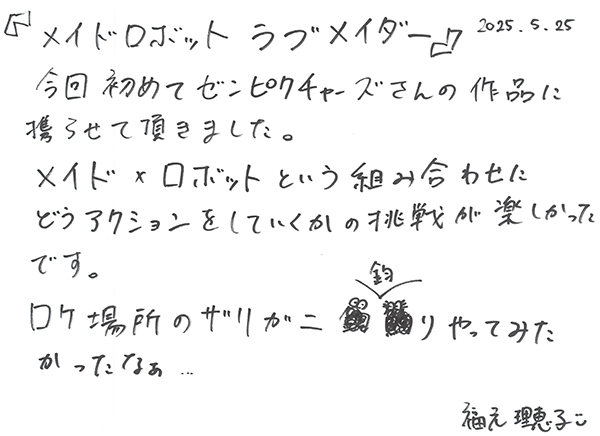 『メイドロボット ラブメイダー』 2025.5.25
今回初めてゼンピクチャーズさんの作品に
携らせて頂きました。
メイド×ロボットという組み合わせに
どうアクションをしていくかの挑戦が楽しかった
です。
ロケ場所のザリガニ釣りやってみた
かったなぁ…
福元 理恵子